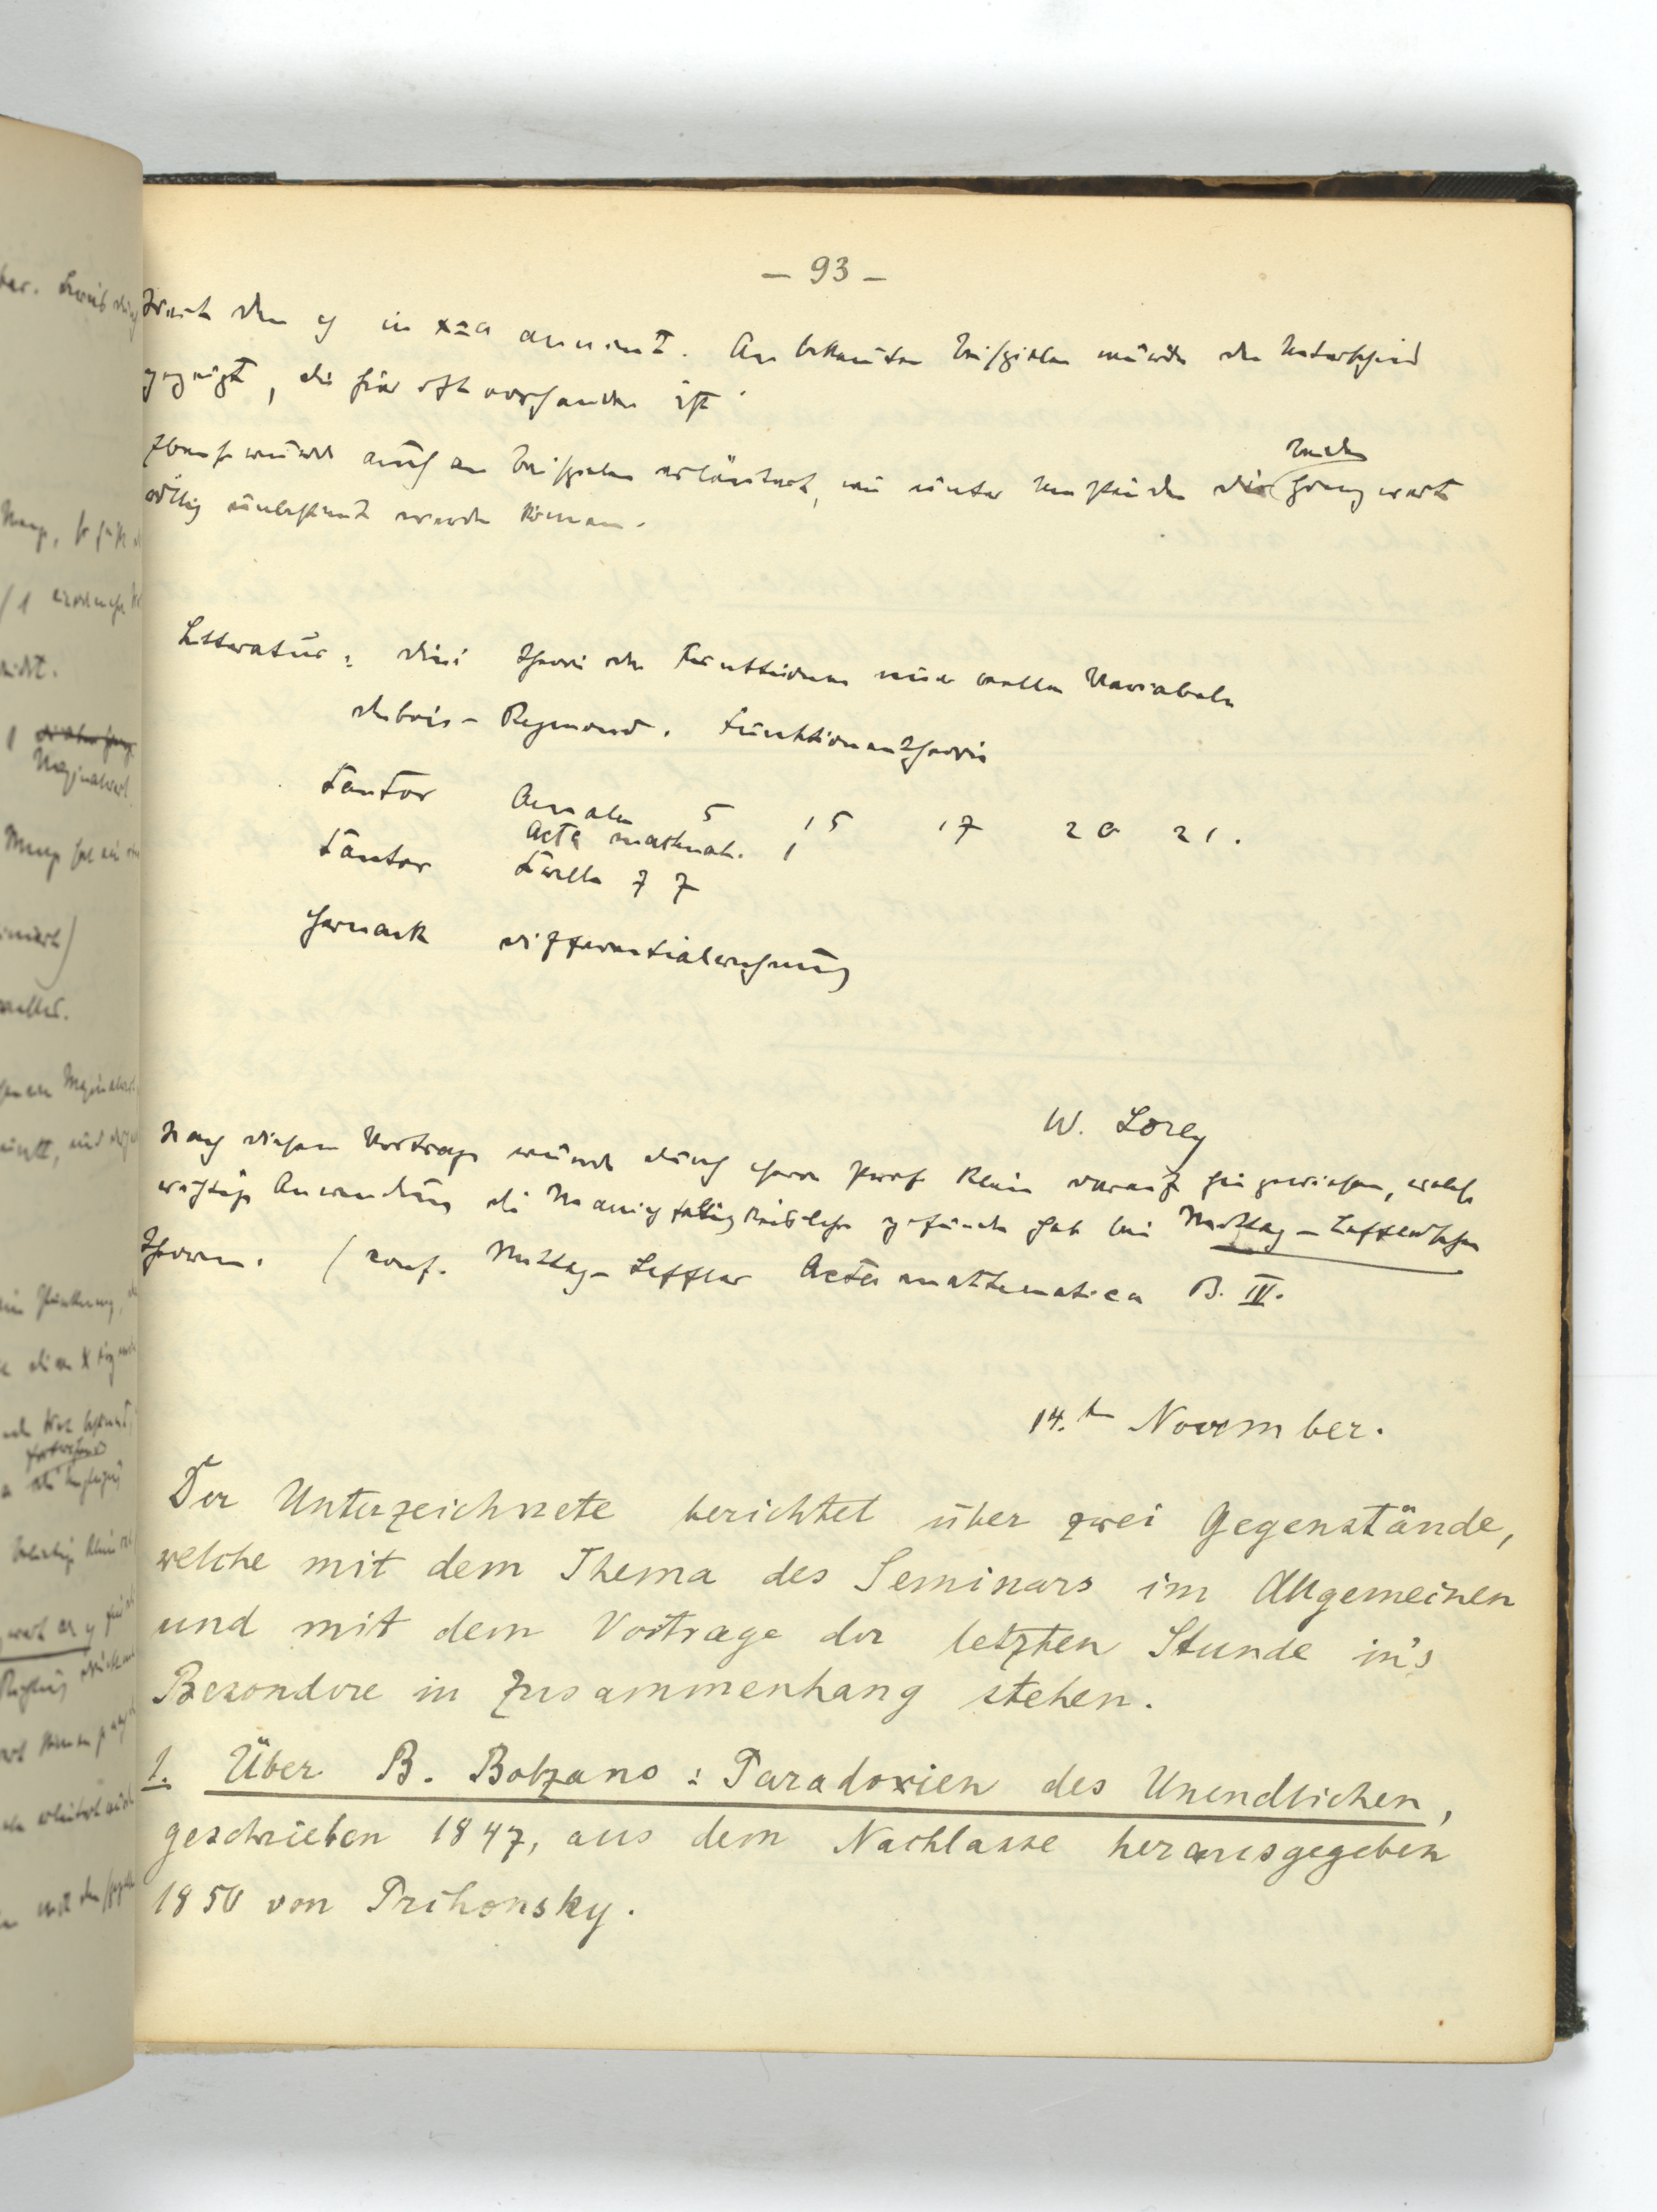 – 93 –
den y in x=a annimt. An bekannten Beispielen wurde der Unterschied
gezeigt, die hier oft vorhanden ist.
Ebenso wurde auch an Beispielen erläutert, wie unter Umständen die beiden Grenzwerte
völlig unbestimt werden können.
Litteratur: Dini Theorie der Funktionen einer reellen Variabeln
Dubois-Reymond. Funktionentheorie
Cantor Annalen 5 15 17 20 21.
Acta mathemat. 1
Cantor Crelle 77
Harnack Differentialrechnung
W. Lorey
Nach diesem Vortrage wurde durch Herrn Prof Klein darauf hingewiesen, welche
wichtige Anwendung die Manigfaltigkeitslehre gefunden hat bei Mittag-Lefflerschen
Theorem. (conf. Mittag-Leffler Acta mathematica B. IV.
14.t November.
Der Unterzeichnete berichtet über zwei Gegenstände,
welche mit dem Thema des Seminars im Allgemeinen
und mit dem Vortrage der letzten Stunde in's
Besondere in Zusammenhang stehen.
1. Über B. Bolzano: Paradoxien des Unendlichen,
geschrieben 1847, aus dem Nachlasse herausgegeben
1850 von Prihonsky.